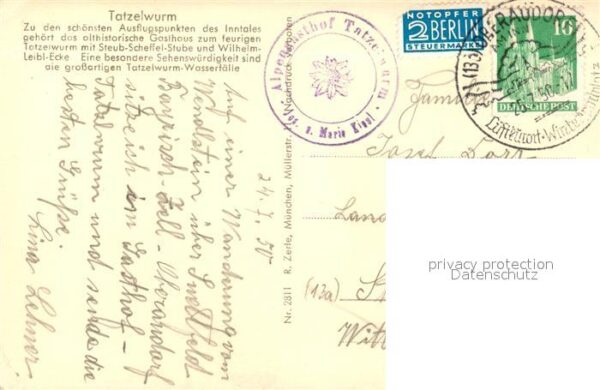 Tatzelwurm
Zu den schönsten Ausflugspunkten des Inntales
gehört das althistorische Gasthaus zum feurigen
Tatzelwurm mit Steub-Scheffel-Stube und Wilhelm-
Leibl-Ecke. Eine besondere Sehenswürdigkeit sind
die großartigen Tatzelwurm-Wasserfälle
24.7.50
Auf einer Wanderung vom
Wendlstein über Sudlfeld
Bayrisch-Zell-Oberaudorf
sitze ich im Gasthof-
Tatzelwurm und sende die
besten Grüße.
Lina Lehner.
Nr. 2811 R. Zerle, München, Müllerstr. Nachdruck verboten
Alpengasthof Tatzelwurm
Jos. u. Marie Kiesl
NOTOPFER
2 BERLIN
STEUERMARKE
10
DEUTSCHE POST
(13b) OBERAUDORF
Luftkurort-Wintersportplatz
Familie
Josef
Land
(13a)
Witt
privacy protection
Datenschutz